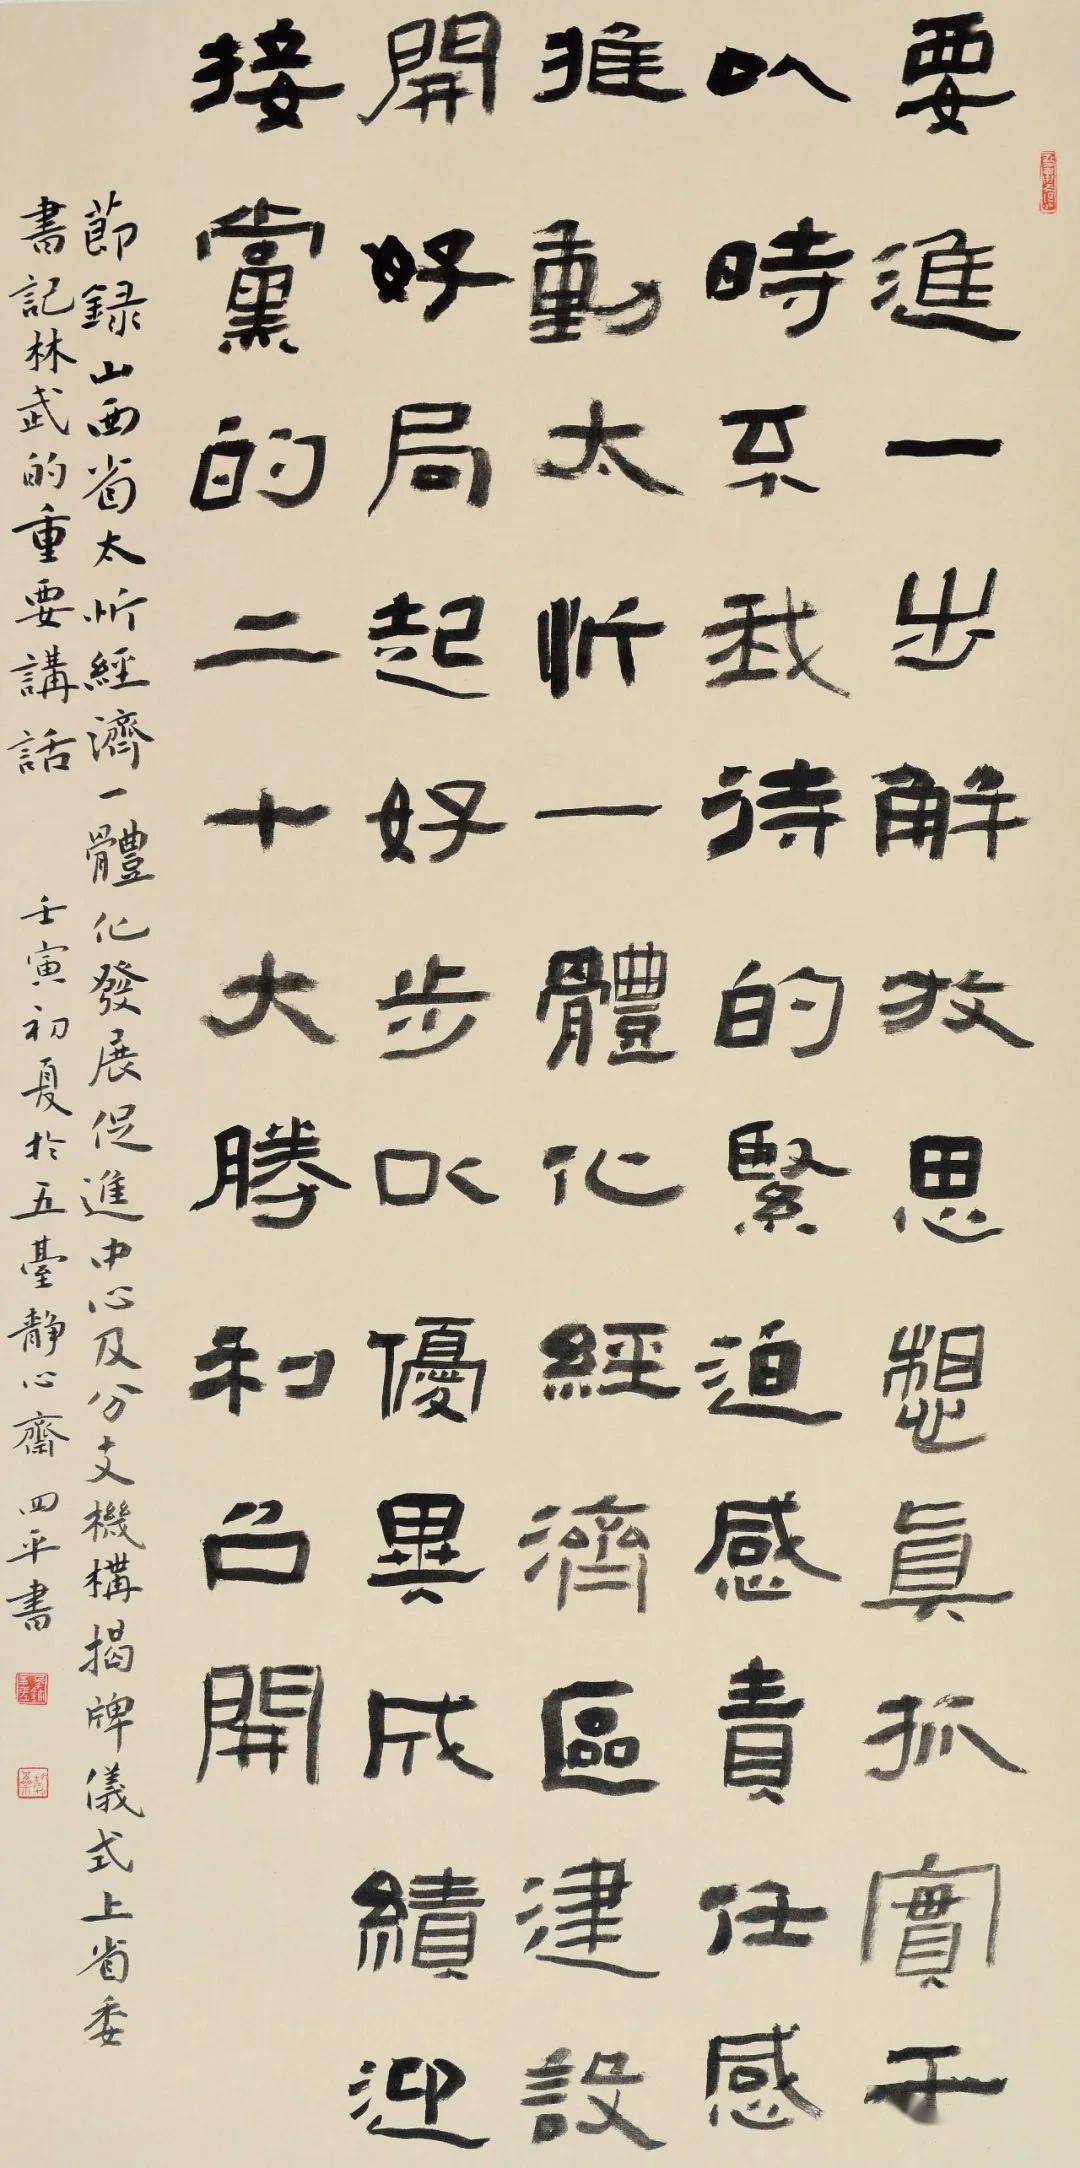 要進一步解放思想眞抓實干
以時不我待的緊迫感責任感
推動太忻一體化經濟區建設
開好局起好步以優異成績迎
接黨的二十大勝利召開
節録山西省太忻經濟一體化發展促進中心及分支機構揭牌儀式上省委
書記林武的重要講話 壬寅初夏於五臺靜心齋 四平書